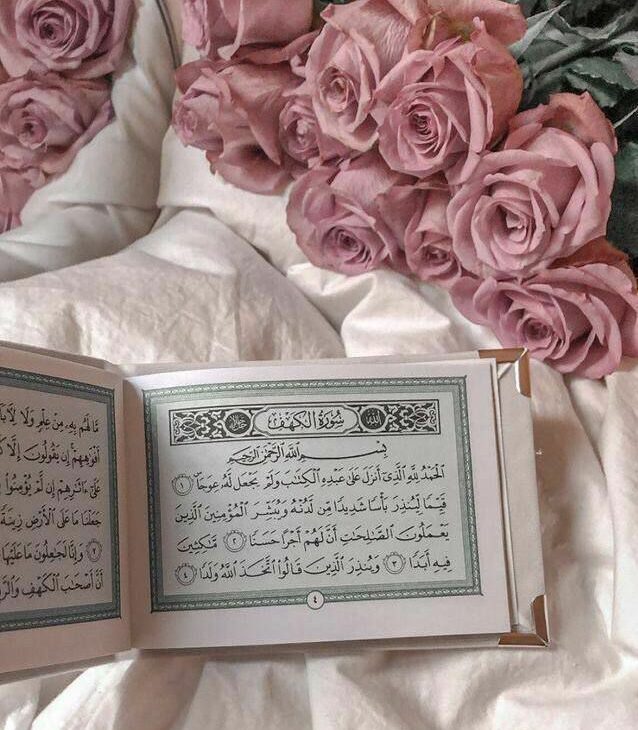 الله
سُورَةُ الكَهْفِ
بِسْمِ اللَّهِ الرَّحْمَٰنِ الرَّحِيمِ
الْحَمْدُ لِلَّهِ الَّذِي أَنزَلَ عَلَىٰ عَبْدِهِ الْكِتَٰبَ وَلَمْ يَجْعَل لَّهُ عِوَجًا ١
قَيِّمًا لِّيُنذِرَ بَأْسًا شَدِيدًا مِّن لَّدُنْهُ وَيُبَشِّرَ الْمُؤْمِنِينَ الَّذِينَ
يَعْمَلُونَ الصَّٰلِحَٰتِ أَنَّ لَهُمْ أَجْرًا حَسَنًا ٢ مَّٰكِثِينَ
فِيهِ أَبَدًا ٣ وَيُنذِرَ الَّذِينَ قَالُوا اتَّخَذَ اللَّهُ وَلَدًا ٤
٤
مَّا لَهُم بِهِ مِنْ عِلْمٍ وَلَا لِآبَا
أَفْوَٰهِهِمْ إِن يَقُولُونَ إِلَّا
عَلَىٰ ءَاثَٰرِهِمْ إِن لَّمْ يُؤْمِنُوا
جَعَلْنَا مَا عَلَى الْأَرْضِ زِينَةً
٧ وَإِنَّا لَجَٰعِلُونَ مَا عَلَيْهَا
أَنَّ أَصْحَٰبَ الْكَهْفِ وَالرَّ